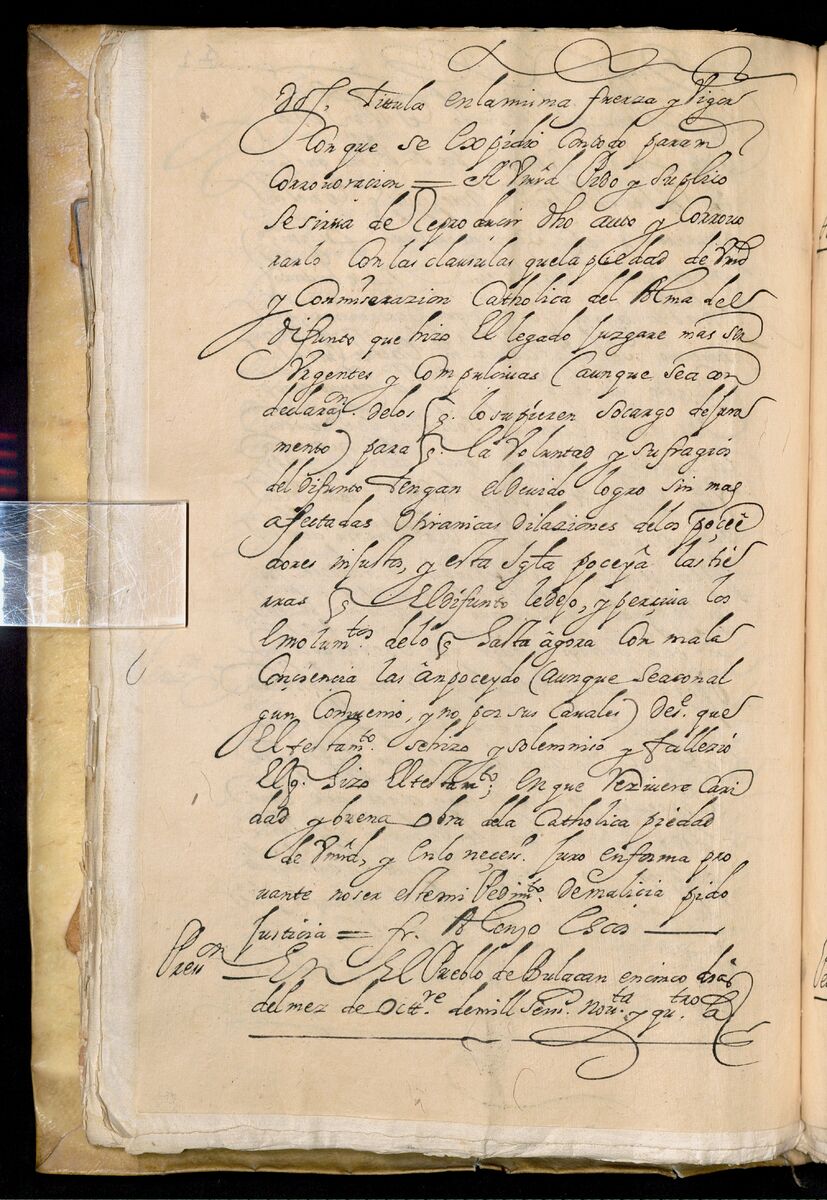 dhos. Titulos en la misma fuerza y Vigor
Con que se Expidio Con todo para su
Corrovoracion = A Vmrd Pido y suplico
se sirva de Reproducir dho auto y Corrovo
rarlo Con las clausulas que la piedad de Vmd
y Commiserazion Catholica del Alma del
difunto que hizo El legado Juzgare mas ser
Vrgentes y Compulsivas (aunque sea con
declaraon. de los q. lo supieren so cargo de jura
mento) para q. la Voluntad y sufragios
del difunto tengan el devido logro sin mas
afectadas O tiranicas dilaziones de los poçeê
dores injustos, y esta sgta poceya las tie
rras q El difunto le dejo, y perçiva los
Emolumtos. de los q hasta âgora Con mala
Conçiencia las ân poceydo (aunque sea con al
gun Convenio, y no por sus Cavales) Dese. que
El testamto. se hizo y solemniso y fallezio
El q. hizo El testamto; en que Rezivere Cari
dad y buena Obra de la Catholica piedad
de Vmrd, y en lo neçesso. Juro en forma pro
vante no ser este mi Pedimto. de malicia pido
Justicia = fr. Alonso
Presson
En El Pueblo de Bulacan en cinco dias
del mez de Octre. de mill seisos. Novta y qutro. a